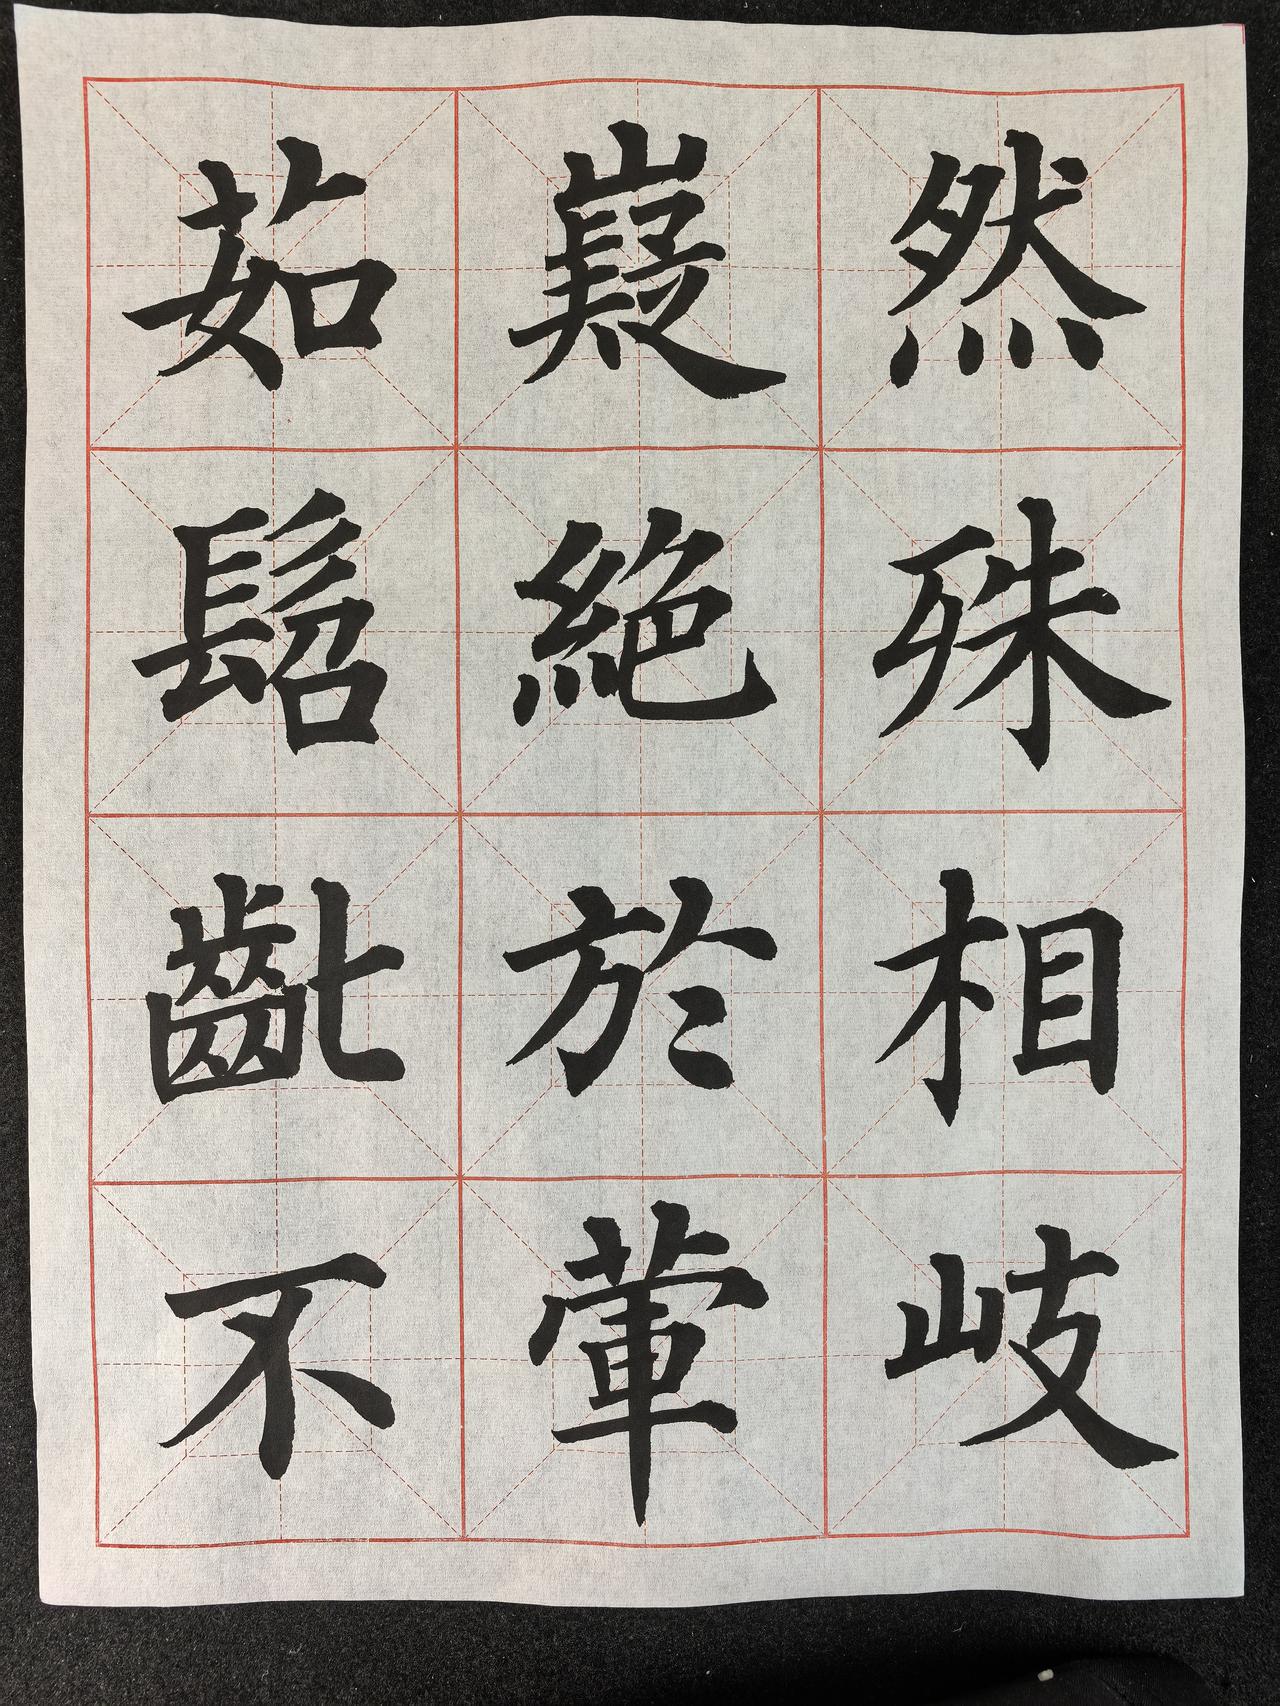 然殊相岐
嶷絶於葷
茹髫齔不